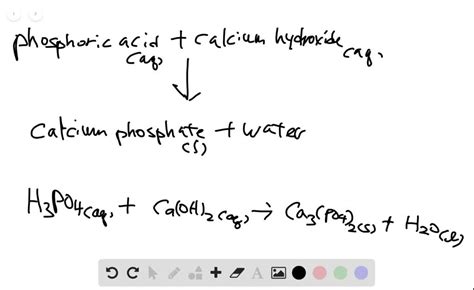 phosphoric acid (aq) + calcium hydroxide (aq)
↓
Calcium phosphate (s) + water
H₃PO₄(aq) + Ca(OH)₂(aq) → Ca₃(PO₄)₂(s) + H₂O(l)
A